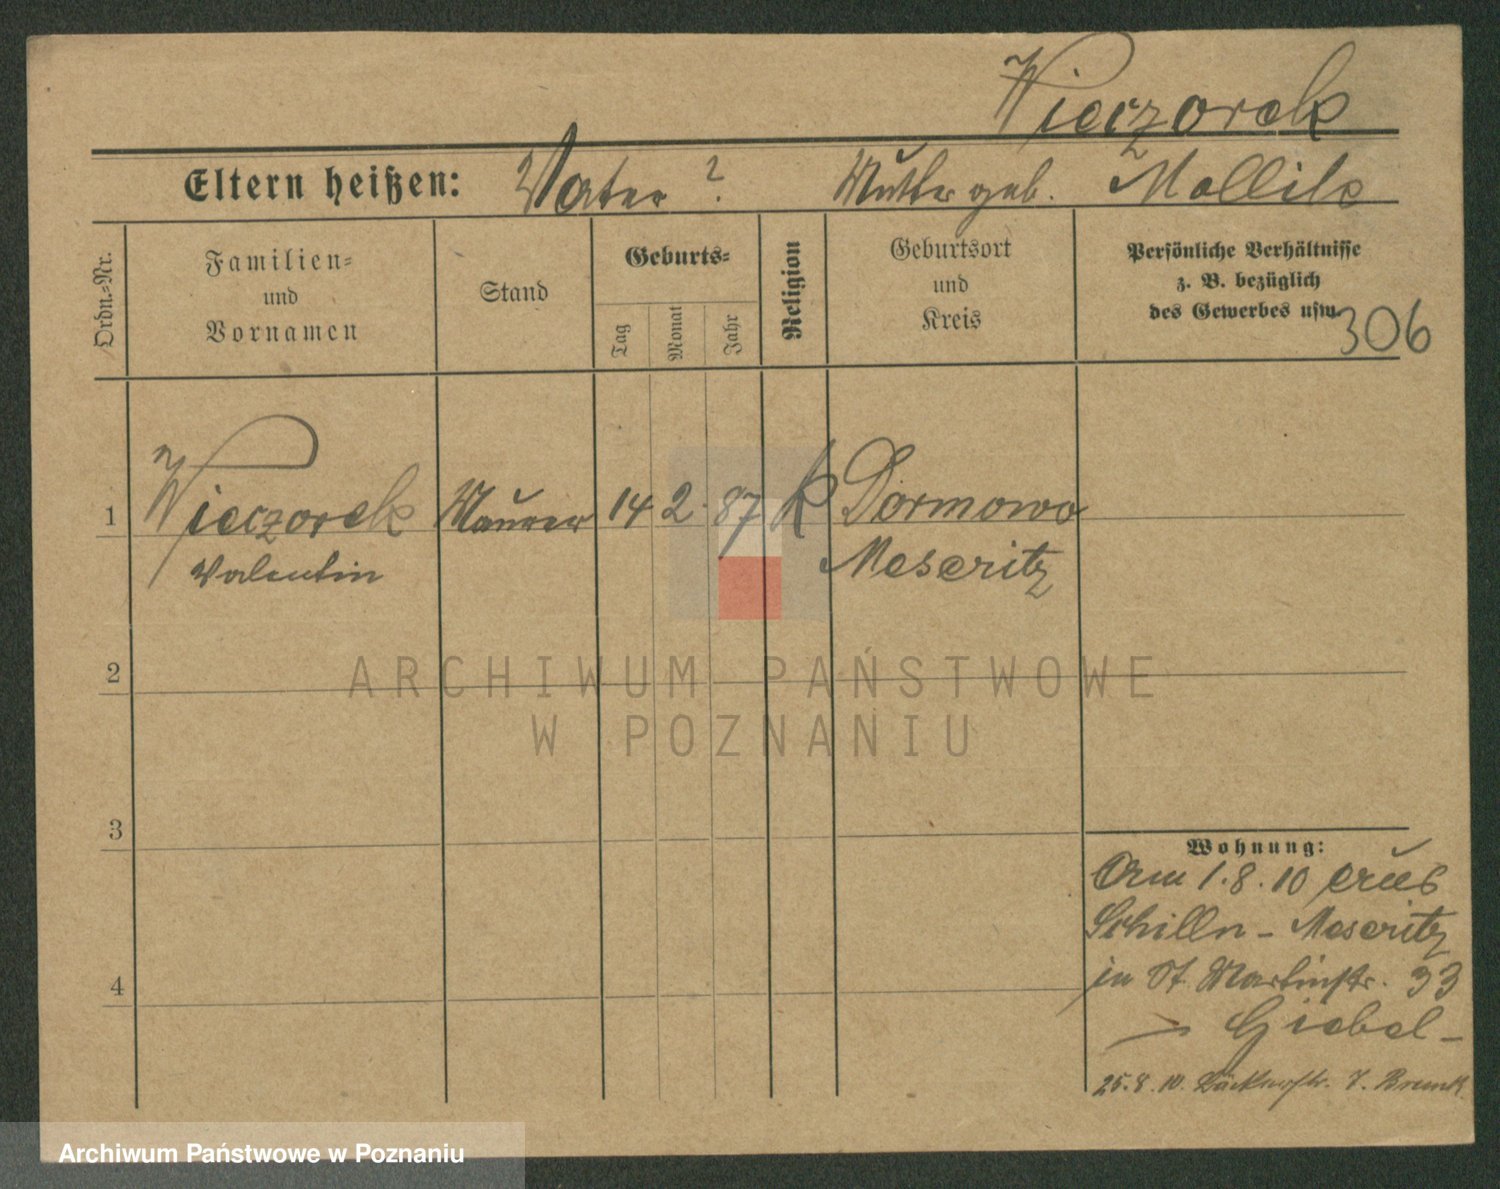 Wieczorek
Eltern heißen: Vater ? Mutter geb. Mollik
Ordn.-Nr.
Familien-
und
Vornamen
Stand
Geburts-
Tag
Monat
Jahr
Religion
Geburtsort
und
Kreis
Persönliche Verhältnisse
z. B. bezüglich
des Gewerbes usw.
306
1 Wieczorek Maurer 14 2. 87 K Dormowo
Valentin Meseritz
2
3
4
Wohnung:
Am 1.8.10 aus
Schilln - Meseritz
in St. Martinstr. 33
Giebel -
25.8.10. Bäckerstr. 7.
ARCHIWUM PAŃSTWOWE
W POZNANIU
Archiwum Państwowe w Poznaniu